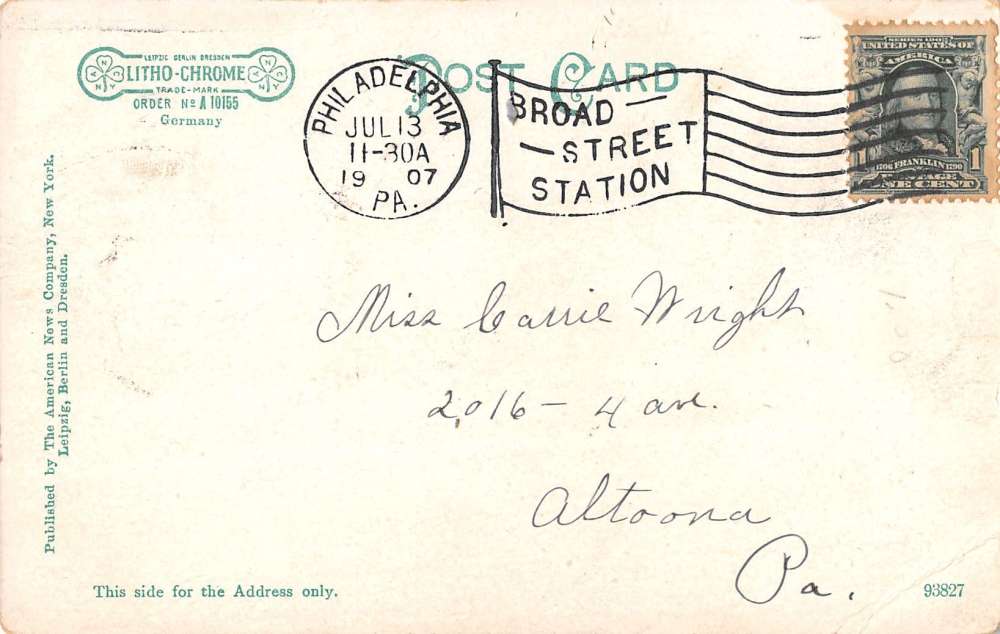 LEIPZIG BERLIN DRESDEN
LITHO-CHROME
TRADE-MARK
ORDER No A 10155
Germany
POST CARD
PHILADELPHIA
JUL 13
11-30A
19 07
PA.
BROAD
STREET
STATION
UNITED STATES OF
AMERICA
1 1
1706 FRANKLIN 1790
POSTAGE
ONE CENT
Published by The American News Company, New York.
Leipzig, Berlin and Dresden.
Miss Carrie Wright
2016 - 4 ave.
Altoona
Pa.
This side for the Address only.
93827